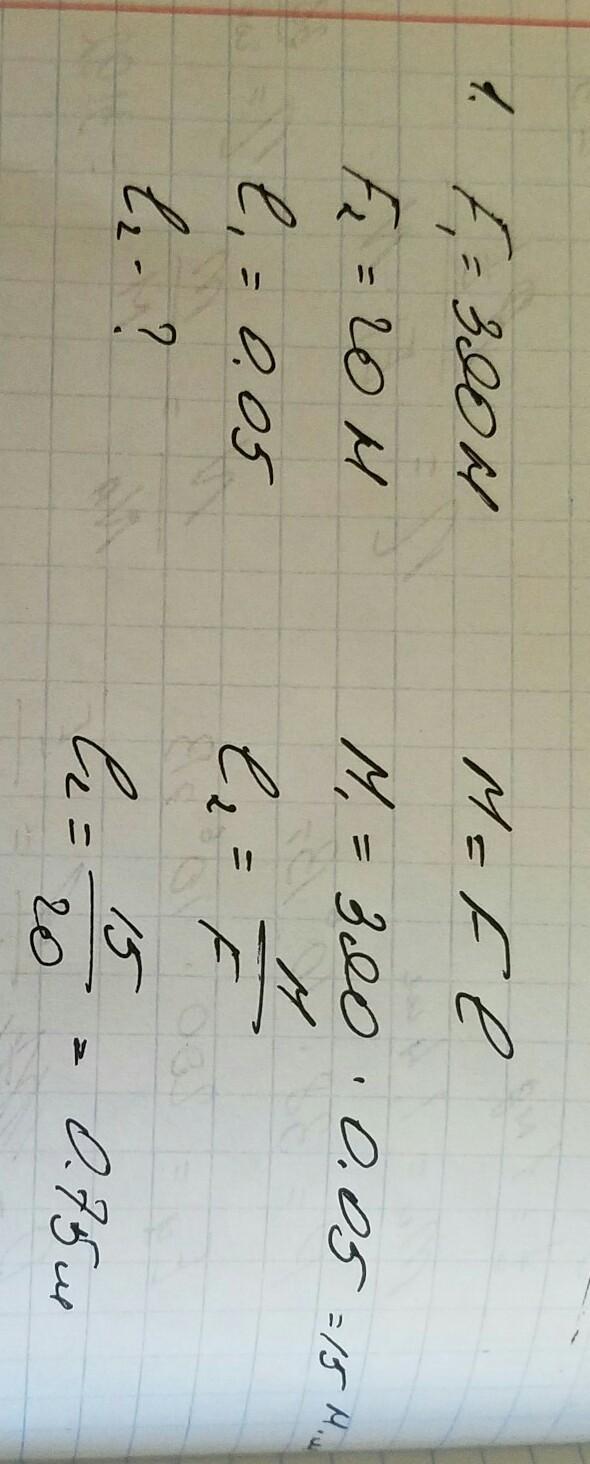 1.
F₁ = 300 Н
F₂ = 20 Н
l₁ = 0.05
l₂ - ?
M = F l
M₁ = 300 · 0.05 = 15 Н.м
l₂ = M / F
l₂ = 15 / 20 = 0.75 м